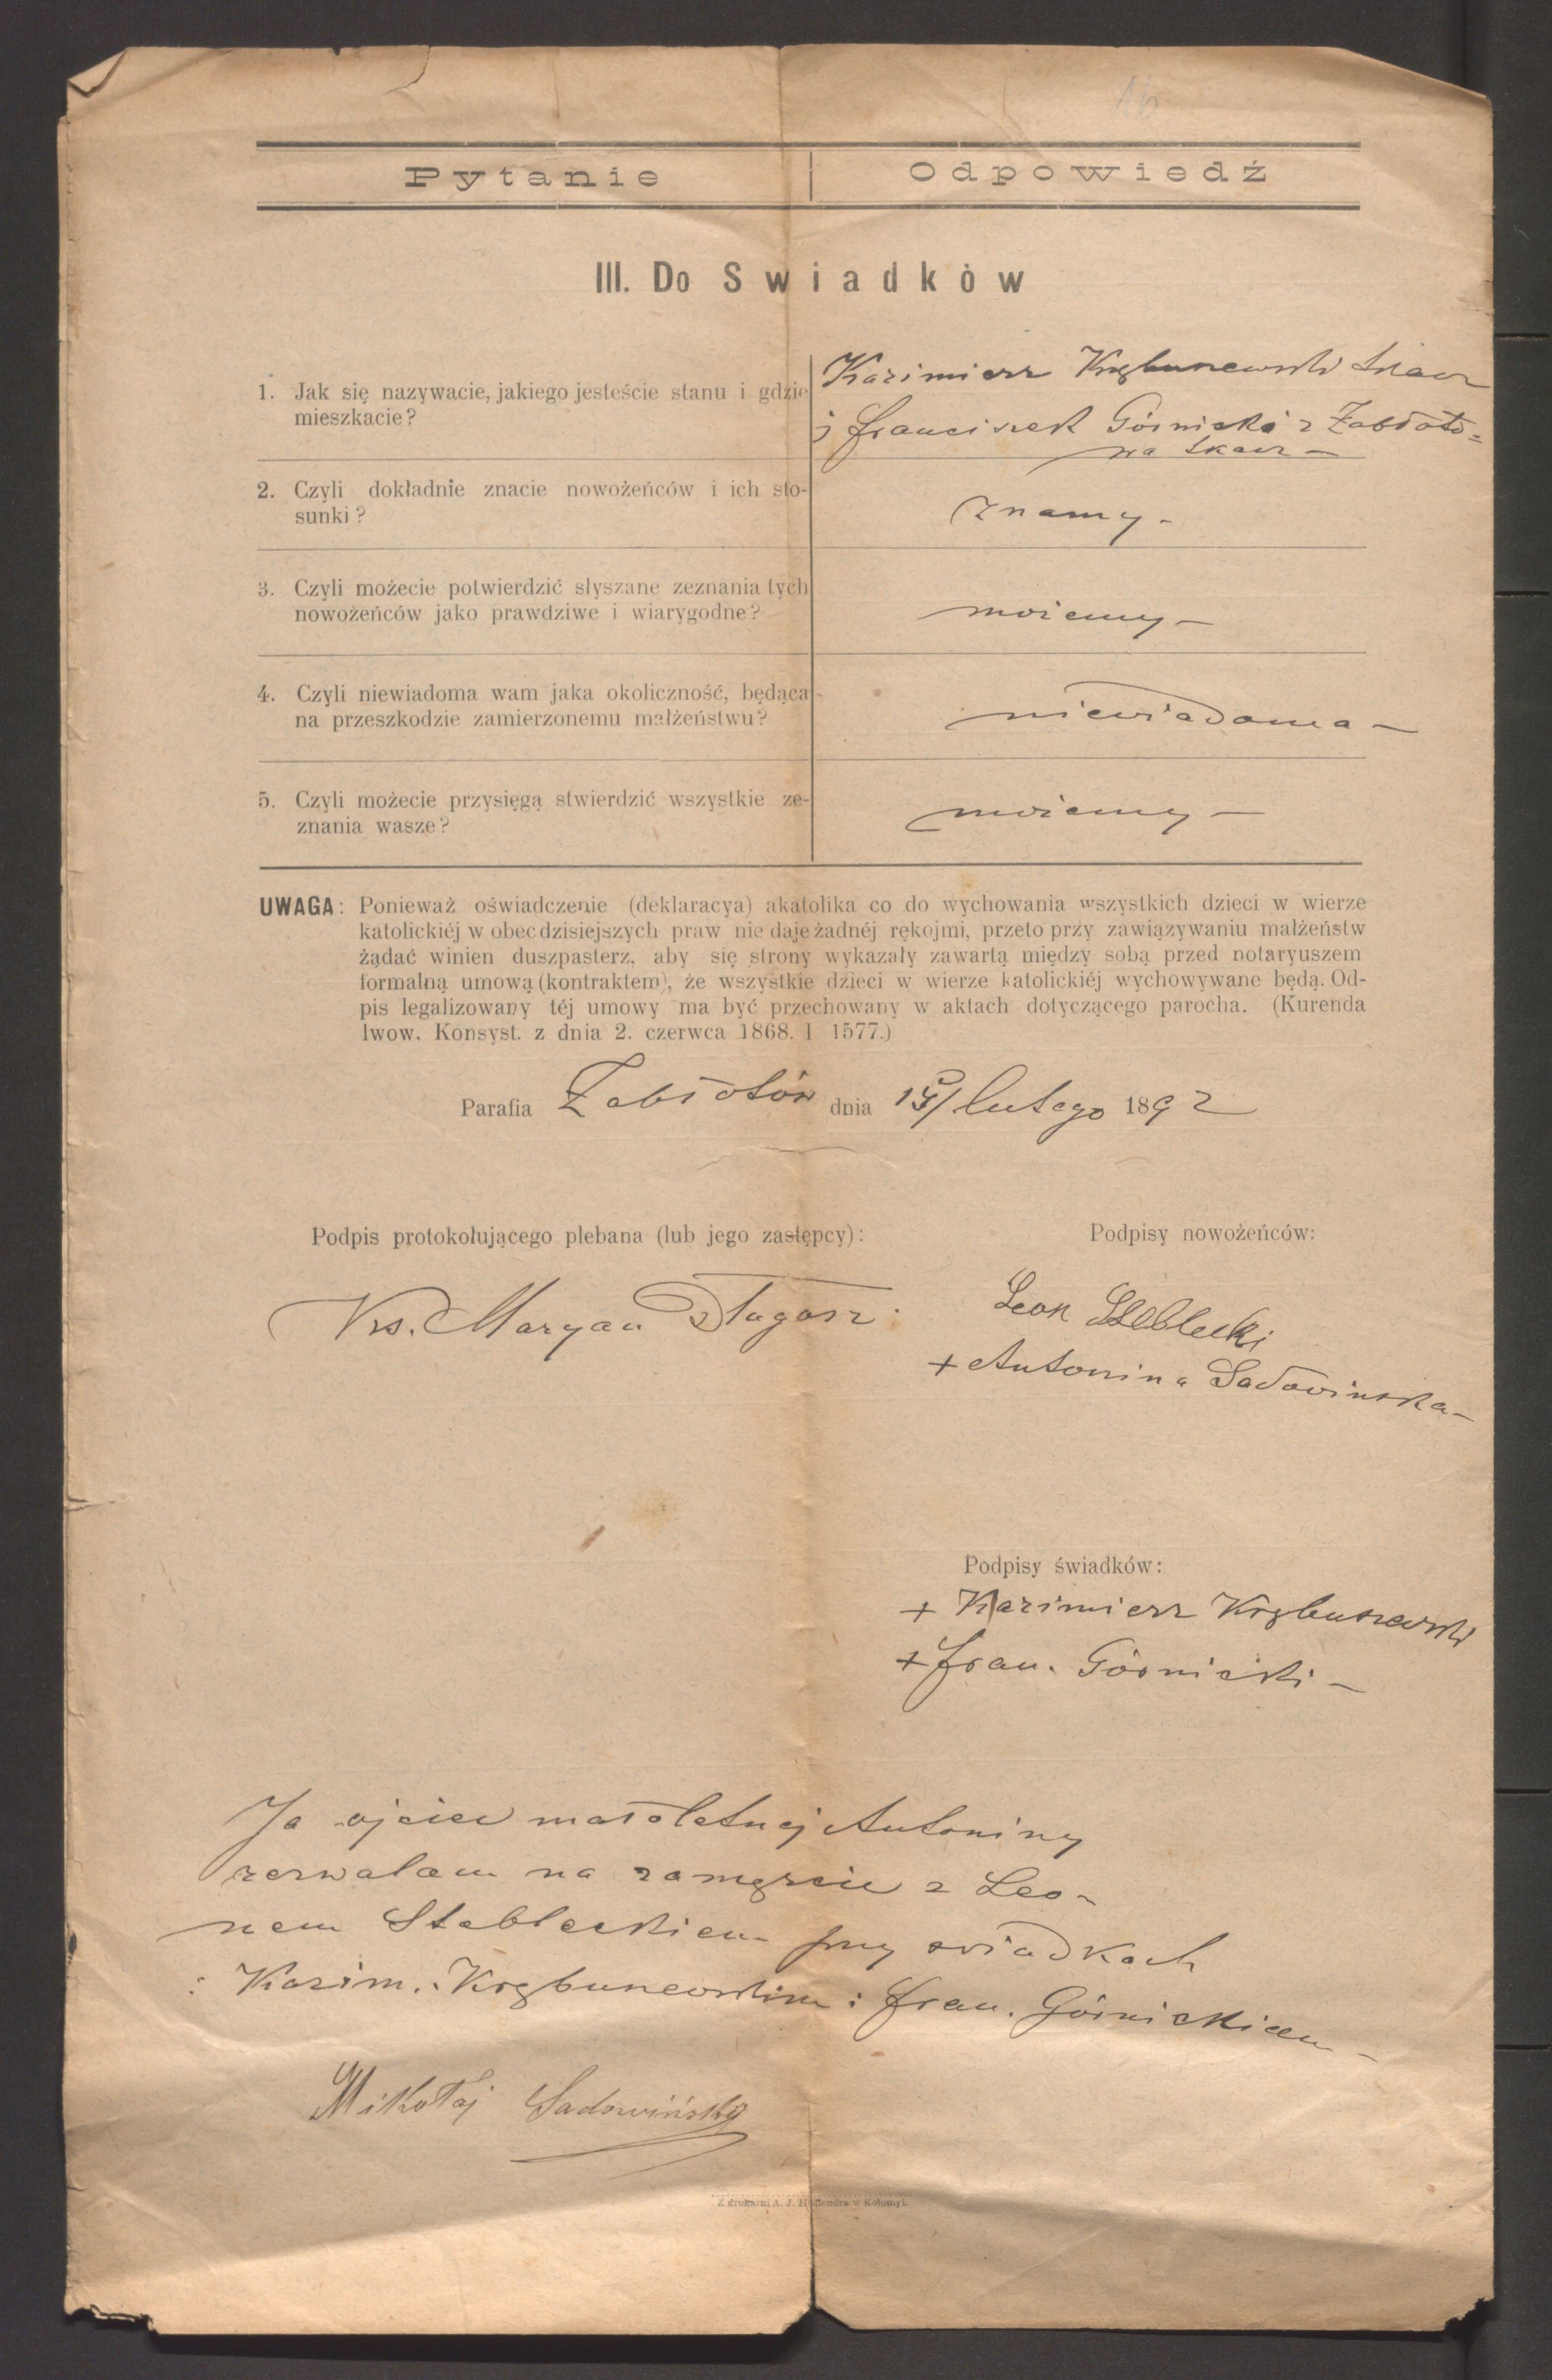 16
Pytanie | Odpowiedź
III. Do Swiadków
1. Jak się nazywacie, jakiego jesteście stanu i gdzie
mieszkacie?
Kazimierz tkacz
i Franciszek Górnicki z Zabłoto=
wa tkacz –
2. Czyli dokładnie znacie nowożeńców i ich sto-
sunki?
znamy –
3. Czyli możecie potwierdzić słyszane zeznania tych
nowożeńców jako prawdziwe i wiarygodne?
możemy –
4. Czyli niewiadoma wam jaka okoliczność, będąca
na przeszkodzie zamierzonemu małżeństwu?
niewiadoma –
5. Czyli możecie przysięgą stwierdzić wszystkie ze-
znania wasze?
możemy –
UWAGA: Ponieważ oświadczenie (deklaracya) akatolika co do wychowania wszystkich dzieci w wierze
katolickiéj w obec dzisiejszych praw nie daje żadnéj rękojmi, przeto przy zawiązywaniu małżeństw
żądać winien duszpasterz, aby się strony wykazały zawartą między sobą przed notaryuszem
formalną umową (kontraktem), że wszystkie dzieci w wierze katolickiéj wychowywane będą. Od-
pis legalizowany téj umowy ma być przechowany w aktach dotyczącego parocha. (Kurenda
lwow. Konsyst. z dnia 2. czerwca 1868. l 1577.)
Parafia Zabłotów dnia lutego 1892
Podpis protokołującego plebana (lub jego zastępcy):
Podpisy nowożeńców:
Ks. Maryan Długosz
Leon Steblecki
+ Antonina Sadowinska –
Podpisy świadków:
+ Kazimierz
+ Fran. Górnicki –
Ja ojciec małoletnej Antoniny
zezwalam na zamęzcie z Leo-
nem Stebleckiem przy swiadkach
: Kazim. i Fran. Górnickiem –
Mikołaj Sadowiński
Z drukarni A. J. Hollendra w Kołomyi.